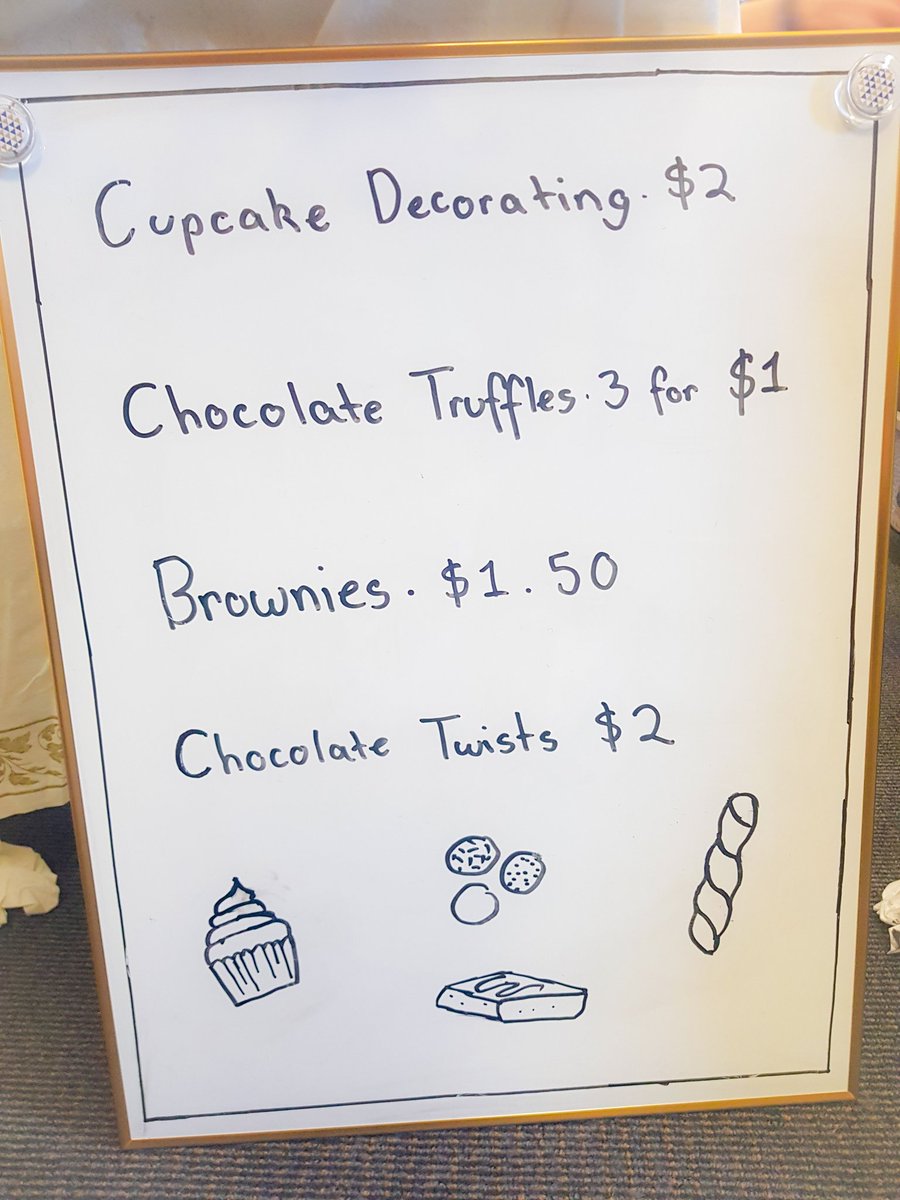 Cupcake Decorating. $2
Chocolate Truffles. 3 for $1
Brownies. $1.50
Chocolate Twists $2